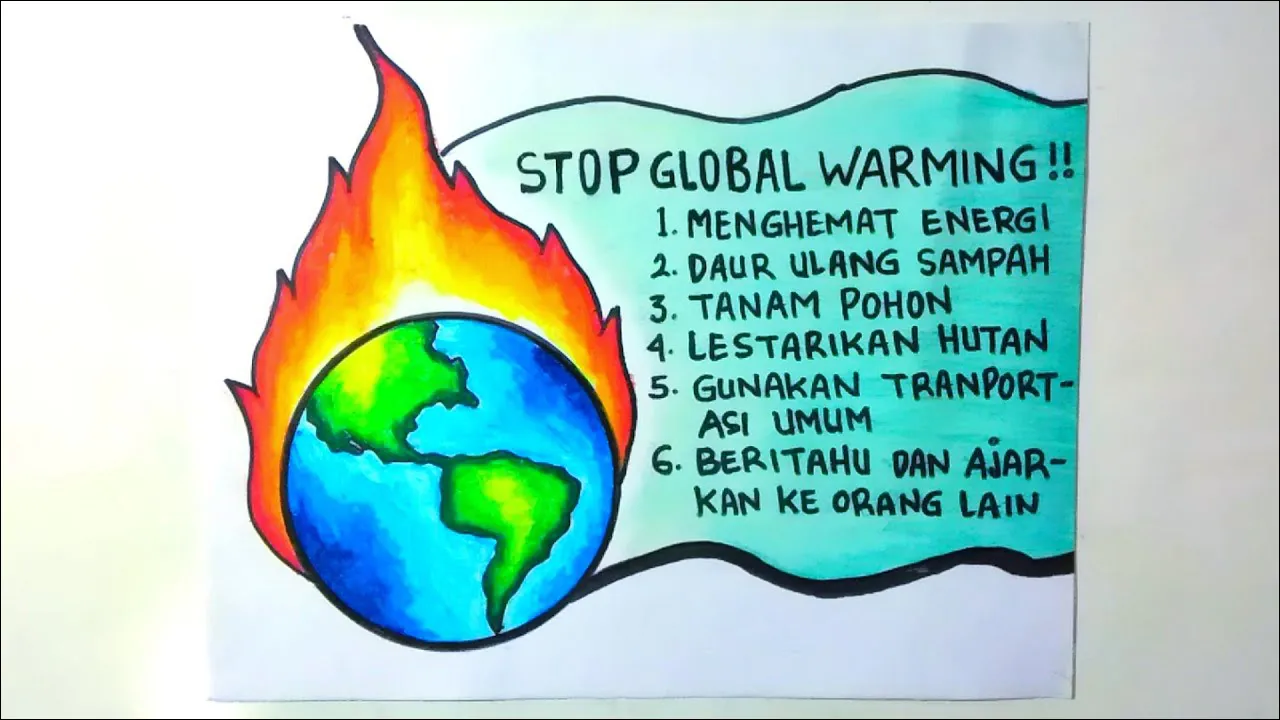 STOP GLOBAL WARMING!!
1. MENGHEMAT ENERGI
2. DAUR ULANG SAMPAH
3. TANAM POHON
4. LESTARIKAN HUTAN
5. GUNAKAN TRANPORT-
ASI UMUM
6. BERITAHU DAN AJAR-
KAN KE ORANG LAIN